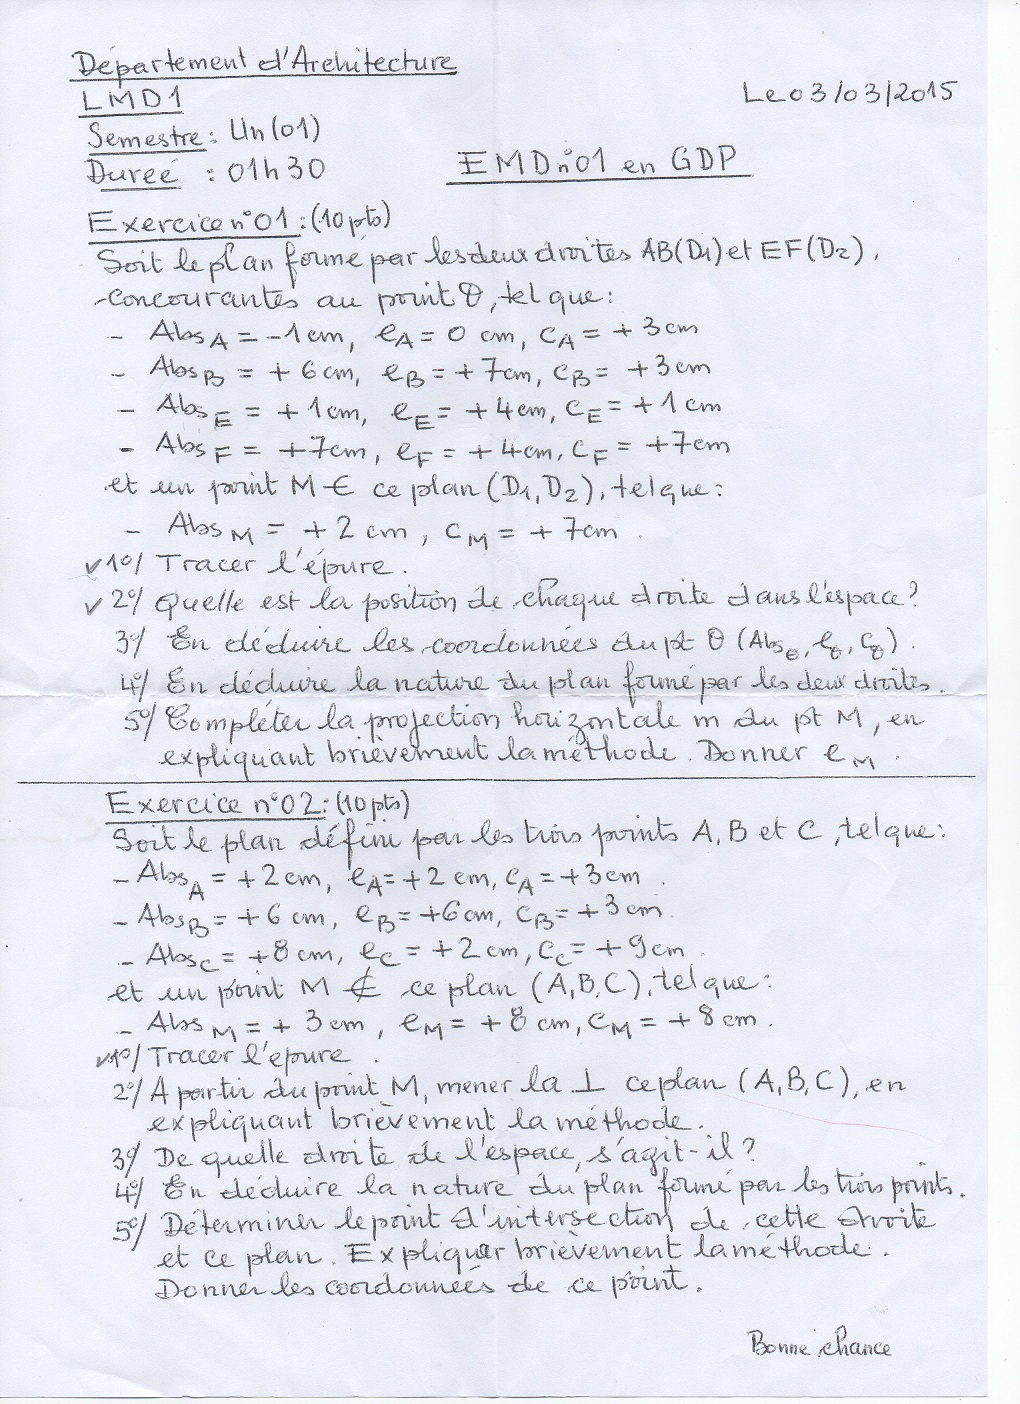 Département d'Architecture
LMD1
Le 03/03/2015
Semestre: Un (01)
Durée : 01h30
EMD n°01 en GDP
Exercice n°01: (10 pts)
Soit le plan formé par les deux droites AB(D1) et EF(D2),
concourantes au point θ, tel que:
- Abs A = -1cm, eA = 0 cm, cA = +3cm
- Abs B = +6cm, eB = +7cm, cB = +3cm
- Abs E = +1cm, eE = +4cm, cE = +1cm
- Abs F = +7cm, eF = +4cm, cF = +7cm
et un point M ∈ ce plan (D1, D2), tel que:
- Abs M = +2cm, cM = +7cm.
✓ 1°/ Tracer l'épure.
✓ 2°/ Quelle est la position de chaque droite dans l'espace?
3°/ En déduire les coordonnées du pt θ (Absθ, eθ, cθ).
4°/ En déduire la nature du plan formé par les deux droites.
5°/ Compléter la projection horizontale m du pt M, en
expliquant brièvement la méthode. Donner eM.
Exercice n°02: (10 pts)
Soit le plan défini par les trois points A, B et C, tel que:
- Abs A = +2cm, eA = +2cm, cA = +3cm.
- Abs B = +6cm, eB = +6cm, cB = +3cm.
- Abs C = +8cm, eC = +2cm, cC = +9cm.
et un point M ∉ ce plan (A, B, C), tel que:
- Abs M = +3cm, eM = +8cm, cM = +8cm.
✓1°/ Tracer l'épure.
2°/ A partir du point M, mener la ⊥ ce plan (A, B, C), en
expliquant brièvement la méthode.
3°/ De quelle droite de l'espace, s'agit-il?
4°/ En déduire la nature du plan formé par les trois points.
5°/ Déterminer le point d'intersection de cette droite
et ce plan. Expliquer brièvement la méthode.
Donner les coordonnées de ce point.
Bonne chance